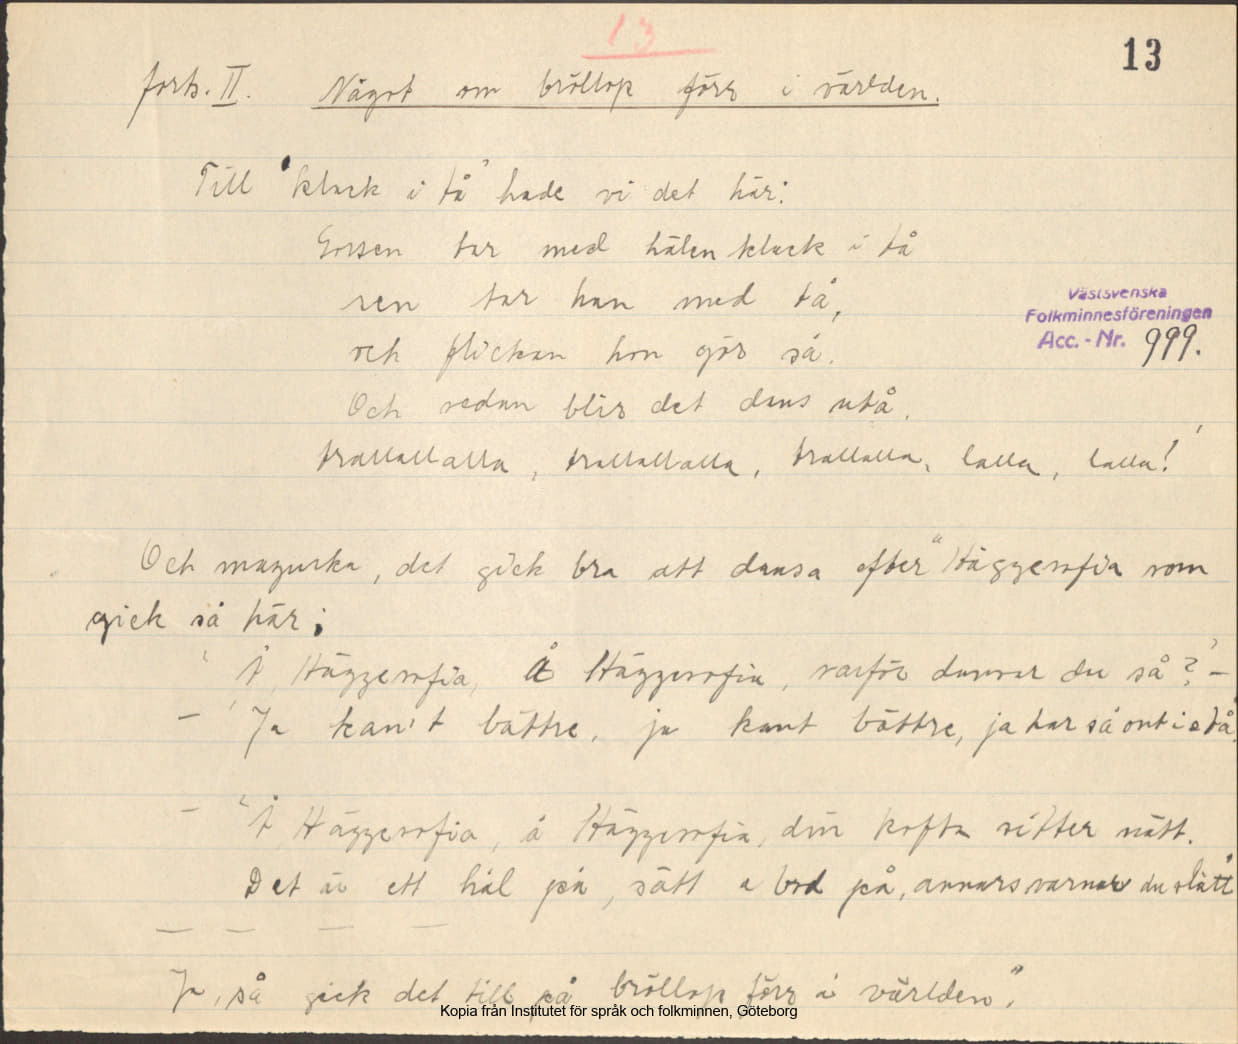 13
13
forts. II. Något om bröllop förr i världen.
Till "klack i tå" hade vi det här:
Gossen tar med hälen klack i tå
sen tar han med tå,
och flickan hon gör så.
Och sedan blir det dans utå.
trallallalla, trallallalla, trallalla, lalla, lalla!'
Västsvenska
Folkminnesföreningen
Acc.-Nr. 999.
Och mazurka, det gick bra att dansa efter "Häggesofia som
gick så här:
'Å, Häggesofia, Å Häggesofia, varför dansar du så?' –
– 'Ja kan't bättre, ja kant bättre, ja har så ont i e tå.
– "Å Häggesofia, å Häggesofia, din kofta sitter nätt.
Det är ett hål på, sätt a bod på, annars varmar du slätt"
— — — —
Ja, så gick det till på bröllop förr i världen".
Kopia från Institutet för språk och folkminnen, Göteborg